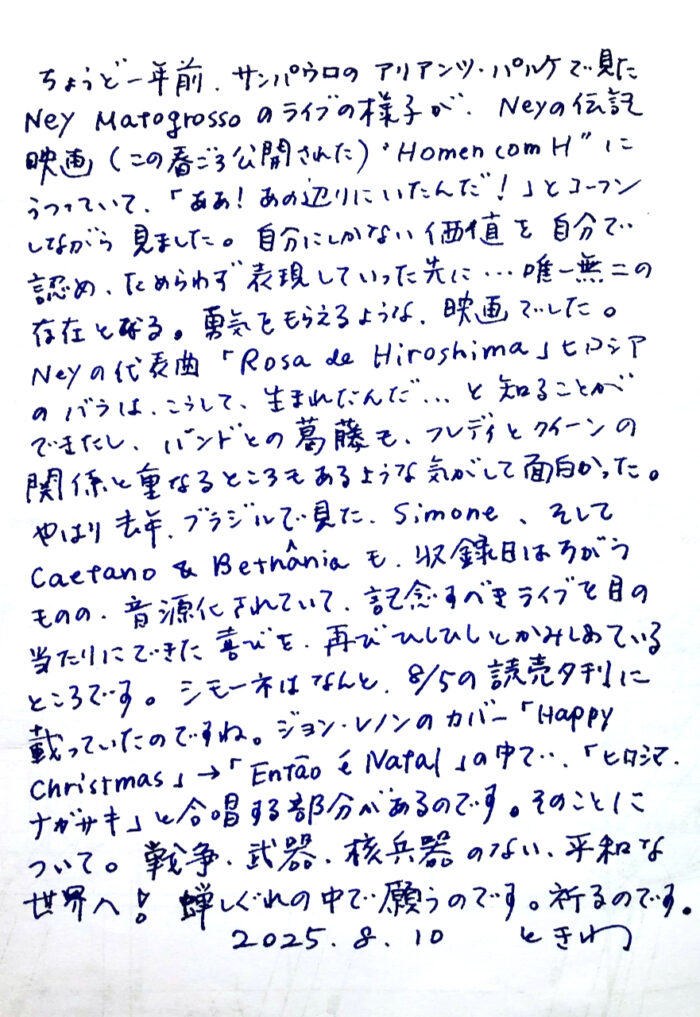 ちょうど一年前、サンパウロの アリアンツ・パルケで見た
Ney Matogrosso のライブの様子が、Neyの伝記
映画(この春ごろ公開された)"Homen com H"に
うつっていて、「ああ!あの辺りにいたんだ!」とコーフン
しながら 見ました。自分にしかない価値を自分で
認め、ためらわず表現していった先に…唯一無二の
存在となる。勇気をもらえるような、映画でした。
Neyの代表曲「Rosa de Hiroshima」ヒロシマ
のバラは、こうして、生まれたんだ…と知ることが
できたし、バンドとの葛藤も、フレディとクイーンの
関係と重なるところもあるような気がして面白かった。
やはり去年、ブラジルで見た、Simone、そして
Caetano & Bethânia も、収録日はちがう
ものの、音源化されていて、記念すべきライブを目の
当たりにできた喜びを、再びひしひしとかみしめている
ところです。シモーネはなんと、8/5の読売夕刊に
載っていたのですね。ジョン・レノンのカバー「Happy
Christmas」→「Então é Natal」の中で…、「ヒロシマ、
ナガサキ」と合唱する部分があるのです。そのことに
ついて。戦争、武器、核兵器のない、平和な
世界へ! 蝉しぐれの中で願うのです。祈るのです。
2025.8.10 ときわ